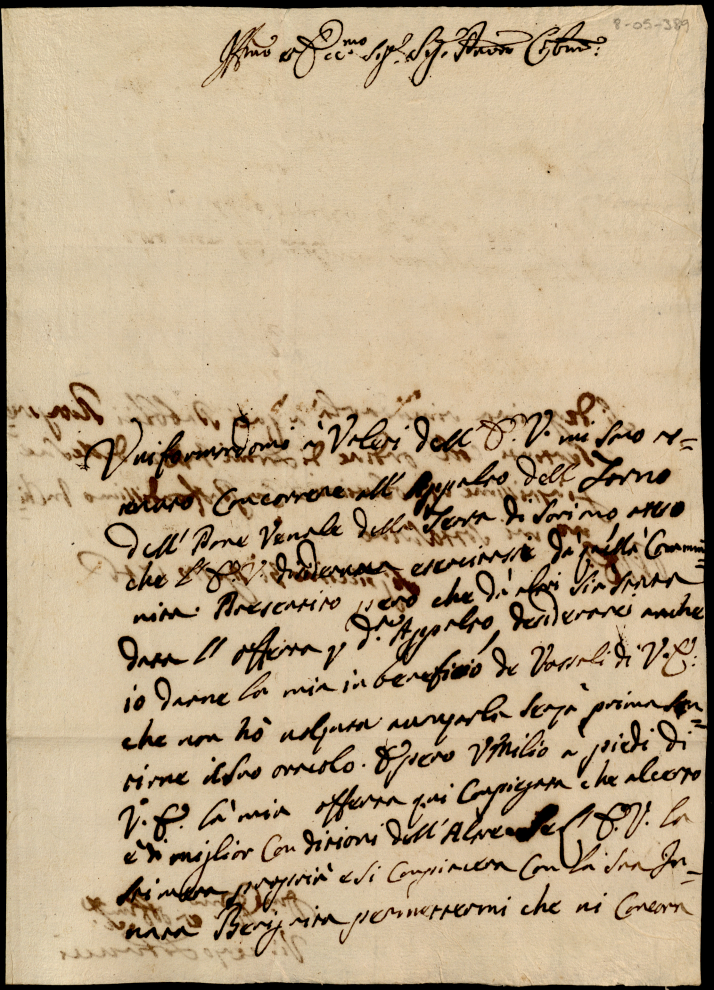 8-05-389
Ill.mo et Ecc.mo Sig.r Sig.r
Uniformandomi à Voleri dell'E. V. mi sono es=
concorrere all'Appalto dell Forno
dell' Pane Venale della Terra di Soriano
che l'E. V. desiderava esercitasse da quella Commu=
nita. però che da altri sia stata
data l'offerta p d.o Appalto, desiderarei anche
io darne la mia in beneficio de Vassali di V. E:
che non hò voluta avanzarla senza prima sen=
tirne il suo oracolo. Espero Umilio a piedi di
V. E. la mia offerta qui Congiegata che al certo
è di miglior Conditioni dell'Altre Se l'E. V. la
stimara propria e si Compiacera Con la sua In=
nata Benignita permettermi che vi Concorra